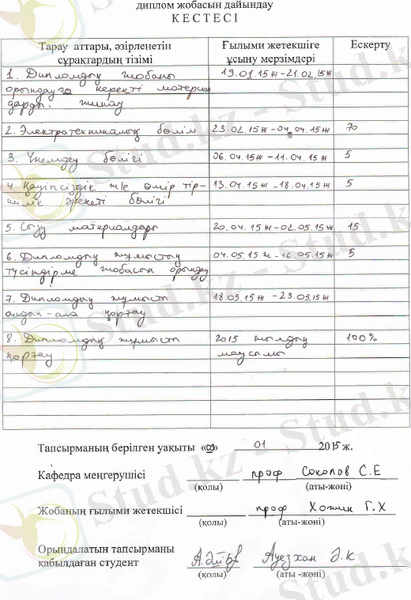 диплом жобасын дайындау
К Е С Т Е С І
Тарау аттары, әзірленетін сұрақтардың тізімі
Ғылыми жетекшіге ұсыну мерзімдері
Ескерту
1. Дипломдық жобаны орындауға керекті материалдарды жинау
19.01.15ж-21.02.15ж
2. Электротехникалық бөлім
23.02.15ж-04.04.15ж
70
3. Үнемдеу бөлігі
06.04.15ж-11.04.15ж
5
4. Қауіпсіздік ж/е өмір тіршілік әрекеті бөлігі
13.04.15ж-18.04.15ж
5
5. Сызу материалдары
20.04.15ж-02.05.15ж
15
6. Дипломдық жұмыстың түсіндірме жобасын орындау
04.05.15ж-16.05.15ж
5
7. Дипломдық жұмысты алдын-ала қорғау
18.05.15ж-23.05.15ж
8. Дипломдық жұмысты қорғау
2015 жылдың маусымы
100%
Тапсырманың берілген уақыты « » 01 2015 ж.
Кафедра меңгерушісі проф Соколов С.Е
(қолы) (аты-жөні)
Жобаның ғылыми жетекшісі проф Хожин Г.Х
(қолы) (аты-жөні)
Орындалатын тапсырманы
қабылдаған студент Ауезхан Ә.К
(қолы) (аты -жөні)
Stud.kz - Stud.kz